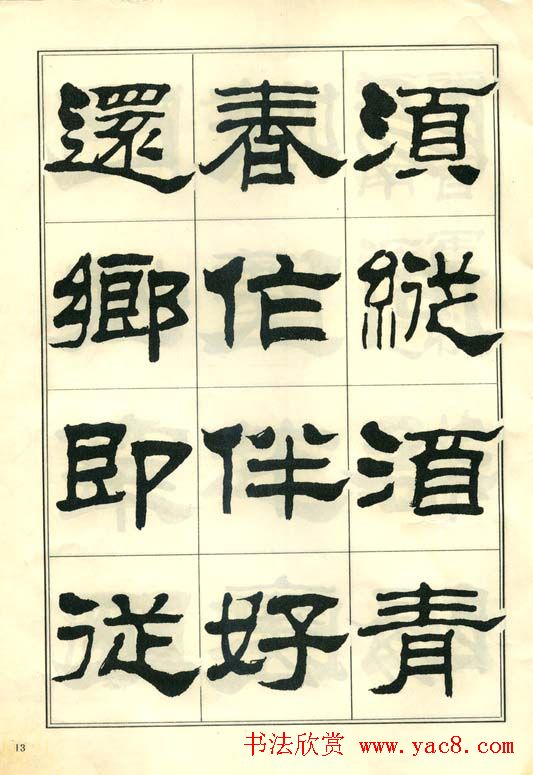 須縱酒青
春作伴好
還鄉即従
13
书法欣赏 www.yac8.com